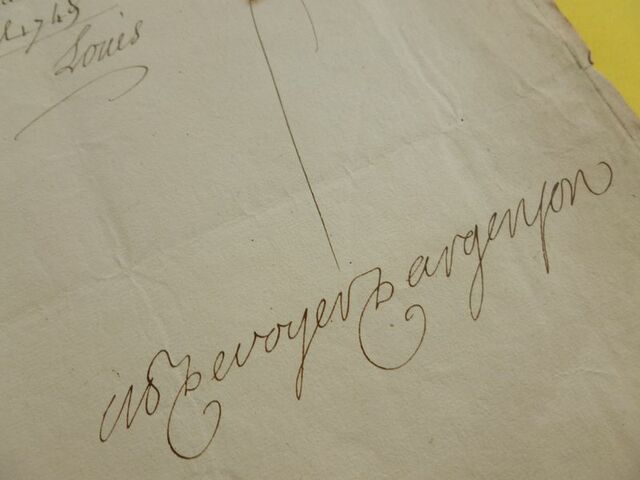 1745
Louis
M de voyer d argenson